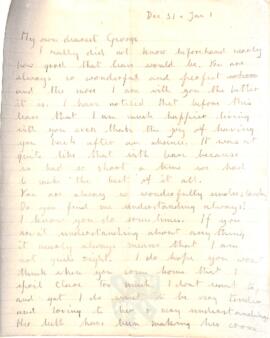 Dec 31 - Jan 1
My own dearest George
I really did not know beforehand nearly
how good that leave would be. You are
always so wonderful and perfect
and the more I am with you the better
it is. I have noticed that before this
leave that I am much happier living
with you even thats the joy of having
you back after an absence. It wasn't
quite like that with leave because
in had so short a time we had
to make the best of it all.
You are always so wonderfully
Do you find me understanding always?
I know you do sometimes. If you
are not understanding about any thing,
it nearly always means that I am
not quite right. I do hope you wont
think when you come home that I
spoil Clare too much. I dont want to,
and yet I do want to be very tender
and loving to her & very understanding.
The have been making her